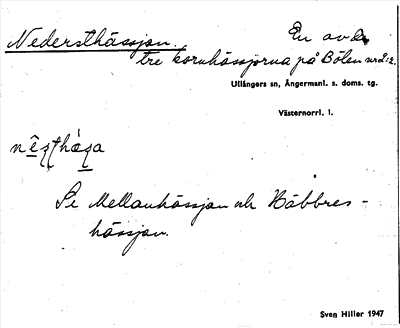 Nedersthässjan. En av de
tre kornhässjorna på Bölen nr 2:2.
Ullångers sn, Ångermanl. s. doms. tg.
Västernorrl. l.
Se Mellanhässjan och Båbbres-
hässjan.
Sven Hiller 1947